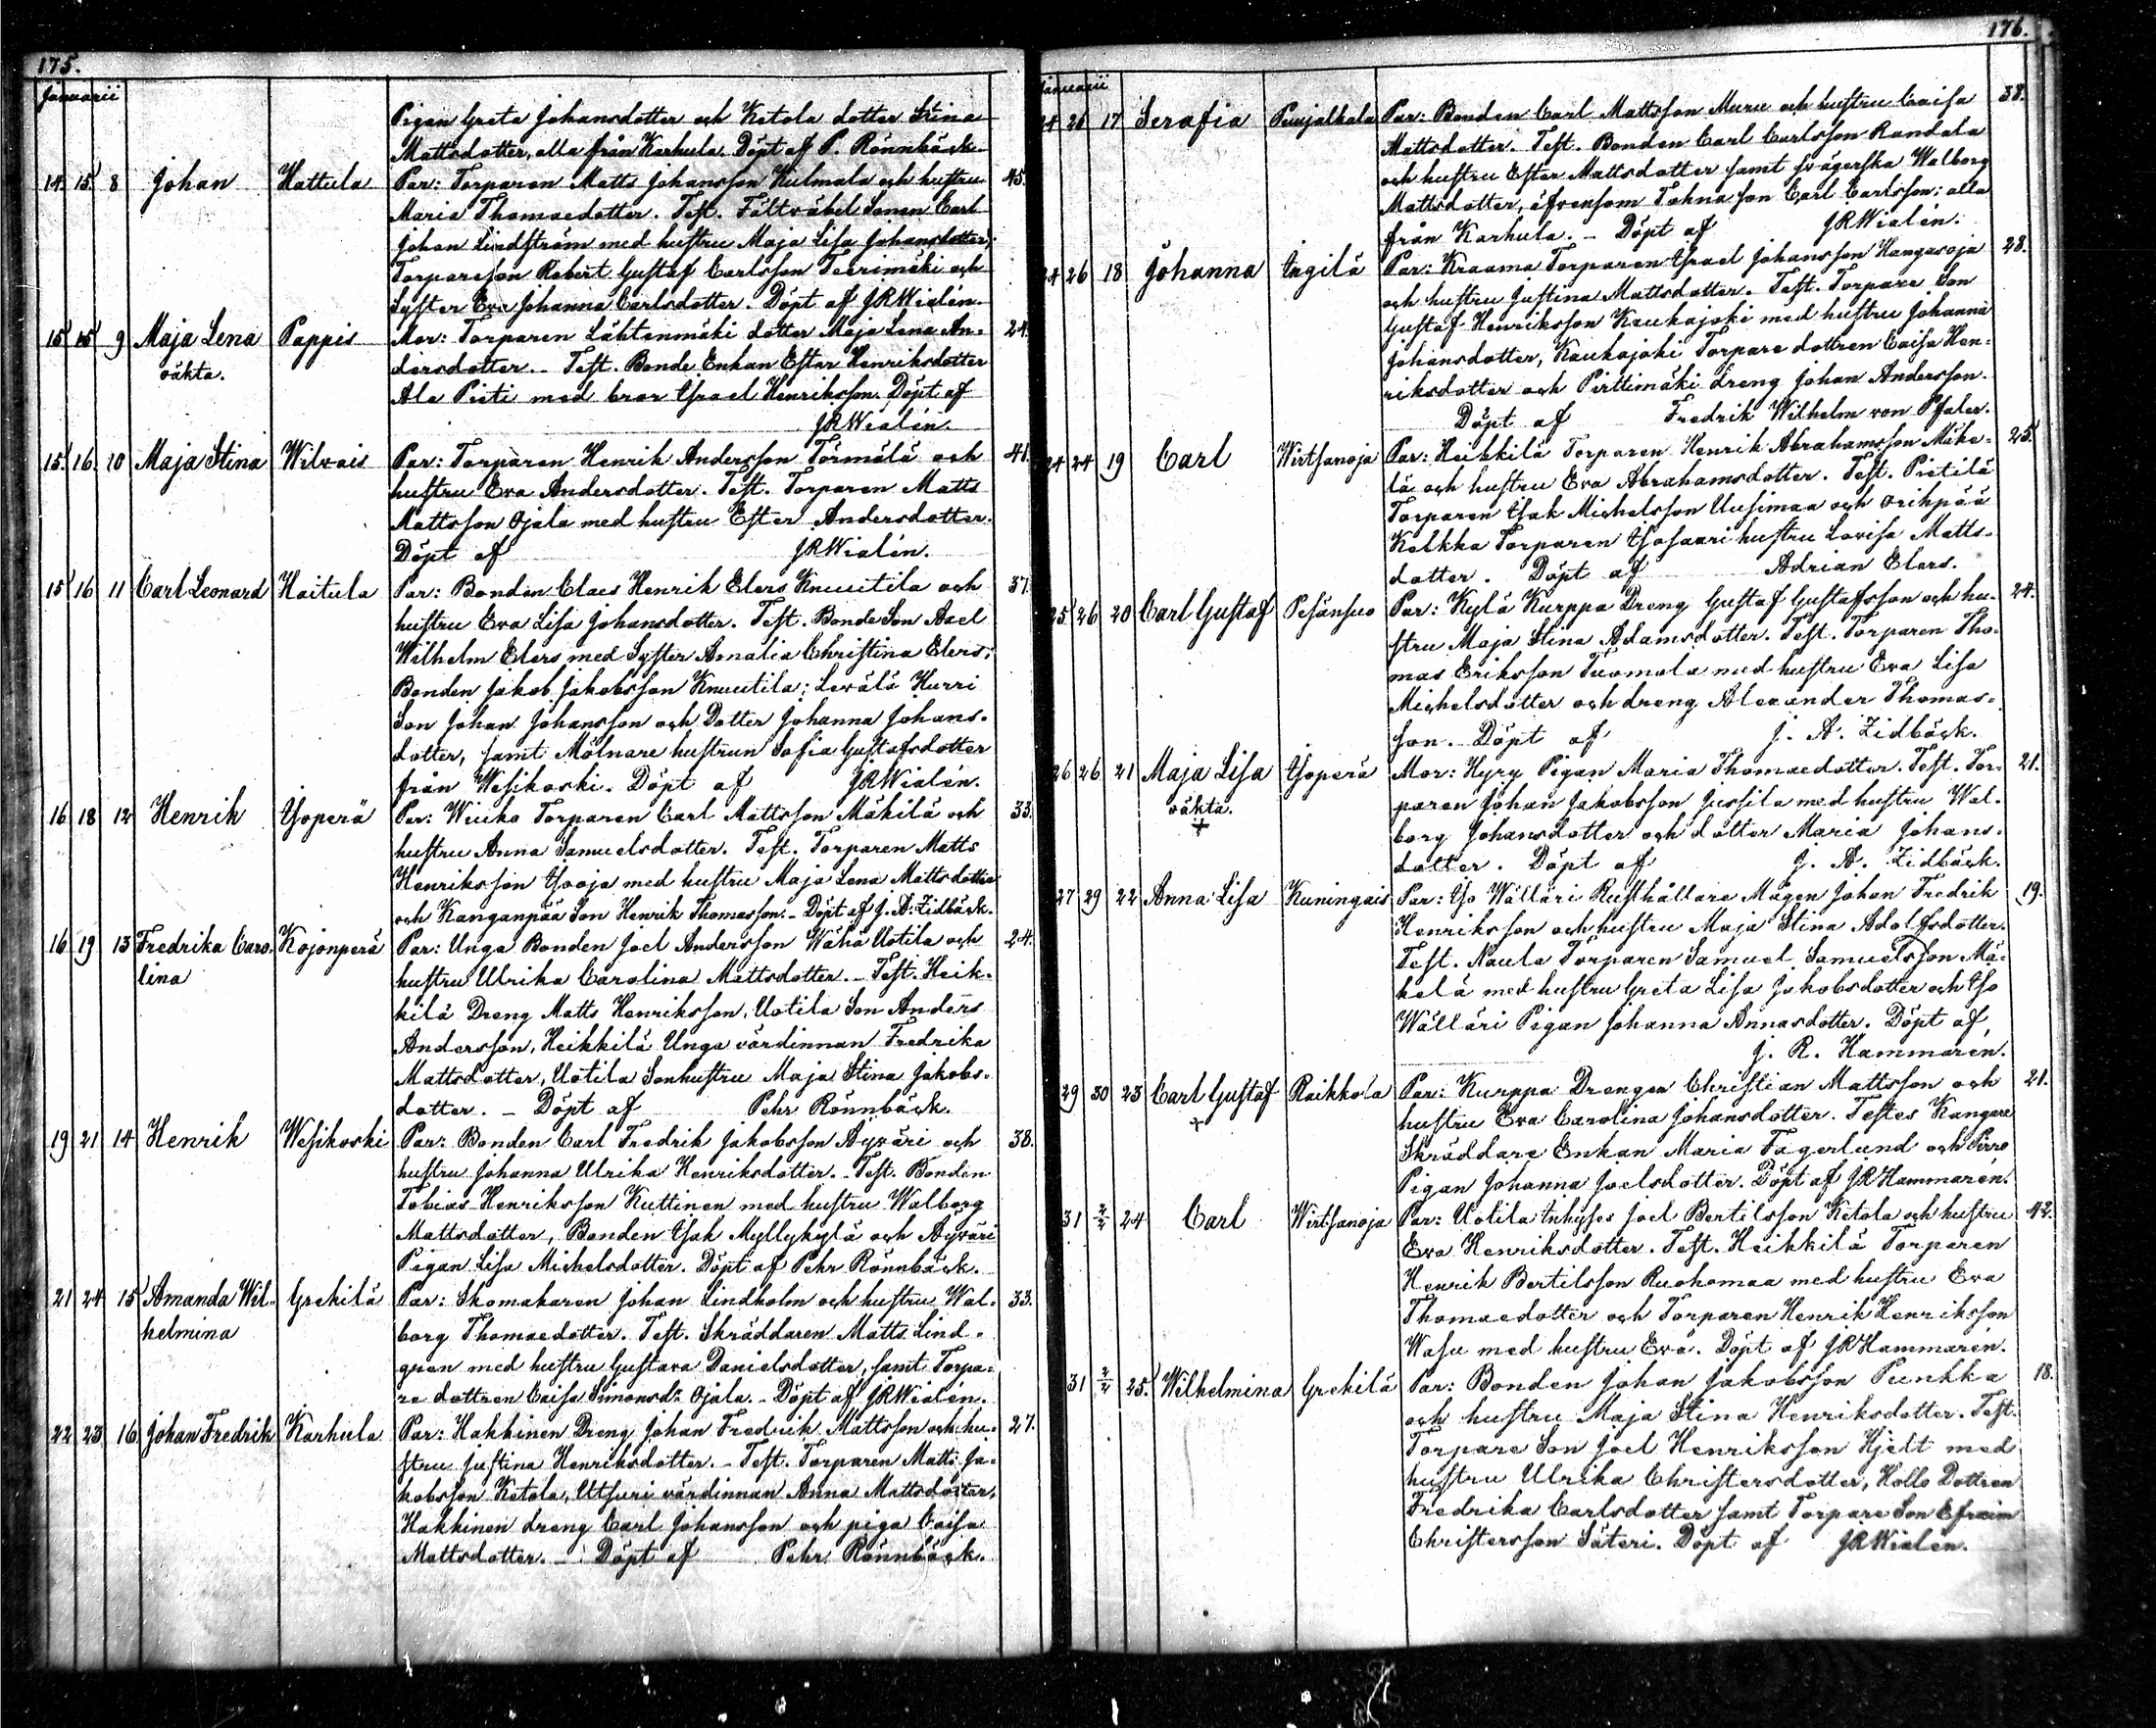 175.
Januarii
Pigan Greta Johansdotter och Ketola dotter Stina
Mattsdotter, alla från Karhula. Döpt af P. Rönnbäck.
14. 15. 8 Johan Hattula Par: Torparen Matts Johansson Kulmala och hustru 45.
Maria Thomaedotter. Test. Fältväbel Sonen Carl
Johan Lindström med hustru Maja Lisa Johansdotter;
Torpareson Robert Gustaf Carlsson Teerimäki och
Syster Eva Johanna Carlsdotter. Döpt af JRWialén.
15 15 9 Maja Lena Pappis Mor: Torparen Lähtenmäki dotter Maja Lena An- 24.
oäkta. dersdotter. - Test. Bonde Enkan Ester Henriksdotter
Ala Pirti med bror Israel Henriksson. Döpt af
JRWialén.
15. 16. 10 Maja Stina Wilvais Par: Torparen Henrik Andersson Törmälä och 41.
hustru Eva Andersdotter. Test. Torparen Matts
Mattsson Ojala med hustru Ester Andersdotter.
Döpt af JRWialén.
15 16 11 Carl Leonard Haitula Par: Bonden Claes Henrik Elers Knuutila och 37.
hustru Eva Lisa Johansdotter. Test. Bonde Son Axel
Wilhelm Elers med Syster Amalia Christina Elers;
Bonden Jakob Jakobsson Knuutila; Levälä Hurri
Son Johan Johansson och Dotter Johanna Johans-
dotter, samt Mölnare hustrun Sofia Gustafsdotter
från Wesikoski. Döpt af JRWialén.
16 18 12 Henrik Isoperä Par: Wiuko Torparen Carl Mattsson Mäkilä och 33.
hustru Anna Samuelsdotter. Test. Torparen Matts
Henriksson Isooja med hustru Maja Lena Mattsdotter
och Kanganpää Son Henrik Thomasson. - Döpt af J. A. Zidbäck.
16 19 13 Fredrika Caro- Kojonperä Par: Unga Bonden Joel Andersson Wähä Uotila och 24.
lina hustru Ulrika Carolina Mattsdotter. - Test. Heik-
kilä Dreng Matts Henriksson, Uotila Son Anders
Andersson, Heikkilä Unga värdinnan Fredrika
Mattsdotter, Uotila Sonhustru Maja Stina Jakobs-
dotter. - Döpt af Pehr Rönnbäck.
19 21 14 Henrik Wesikoski Par: Bonden Carl Fredrik Jakobsson Äyväri och 38.
hustru Johanna Ulrika Henriksdotter. - Test. Bonden
Tobias Henriksson Kuttinen med hustru Walborg
Mattsdotter, Bonden Isak Myllykylä och Äyväri
Pigan Lisa Michelsdotter. Döpt af Pehr Rönnbäck.
21 24 15 Amanda Wil- Grekilä Par: Skomakaren Johan Lindholm och hustru Wal- 33.
helmina borg Thomaedotter. Test. Skräddaren Matts Lind-
gren med hustru Gustava Danielsdotter, samt Torpa-
re dottren Caisa Simonsdr Ojala. - Döpt af JRWialén.
22 23 16 Johan Fredrik Karhula Par: Hakkinen Dreng Johan Fredrik Mattsson och hu- 27.
stru Justina Henriksdotter. - Test. Torparen Matts Ja-
kobsson Ketola, Utsuri värdinnan Anna Mattsdotter,
Hakkinen dreng Carl Johansson och piga Caisa
Mattsdotter. - Döpt af Pehr Rönnbäck.
176.
Januarii
24 26 17 Serafia Peujalkala Par: Bonden Carl Mattsson Muru och hustru Caisa 38.
Mattsdotter. Test. Bonden Carl Carlsson Randala
och hustru Ester Mattsdotter samt svägerska Walborg
Mattsdotter, äfvensom Tahna son Carl Carlsson; alla
från Karhula. - Döpt af JRWialén.
24 26 18 Johanna Ingilä Par: Kraama Torparen Israel Johansson Kangasoja 28.
och hustru Justina Mattsdotter. Test. Torpare Son
Gustaf Henriksson Kaukajoki med hustru Johanna
Johansdotter, Kaukajoki Torpare dottren Caisa Hen-
riksdotter och Pirttimäki dreng Johan Andersson.
Döpt af Fredrik Wilhelm von Pfaler.
24 24 19 Carl Wirtsanoja Par: Heikkilä Torparen Henrik Abrahamsson Mäke- 25.
lä och hustru Eva Abrahamsdotter. Test. Pietilä
Torparen Isak Michelsson Uusimaa och Orihpää
Kolkka Torparen Isosaari hustru Lovisa Matts-
dotter. Döpt af Adrian Elers.
25 26 20 Carl Gustaf Pesänsuo Par: Kylä Kurppa Dreng Gustaf Gustafsson och hu- 24.
stru Maja Stina Adamsdotter. Test. Torparen Tho-
mas Eriksson Tuomola med hustru Eva Lisa
Michelsdotter och dreng Alexander Thomas-
son. Döpt af J. A. Zidbäck.
26 26 21 Maja Lisa Isoperä Mor: Hyry Pigan Maria Thomaedotter. Test. Tor- 21.
oäkta. paren Johan Jakobsson Jussila med hustru Wal-
+ borg Johansdotter och dotter Maria Johans-
dotter. Döpt af J. A. Zidbäck.
27 29 22 Anna Lisa Kuningais Par: Iso Wälläri Rusthållare Mågen Johan Fredrik 19.
Henriksson och hustru Maja Stina Adolfsdotter.
Test. Naula Torparen Samuel Samuelsson Mä-
kelä med hustru Greta Lisa Jakobsdotter och Iso
Wälläri Pigan Johanna Annasdotter. Döpt af
J. R. Hammarén.
29 30 23 Carl Gustaf Raikkola Par: Kurppa Drengen Christian Mattsson och 21.
+ hustru Eva Carolina Johansdotter. Testes Kangare
Skräddare Enkan Maria Fagerlund och Pirre
Pigan Johanna Joelsdotter. Döpt af JRHammarén.
31 2/2 24 Carl Wirtsanoja Par: Uotila Inhyses Joel Bertilsson Ketola och hustru 42.
Eva Henriksdotter. Test. Heikkilä Torparen
Henrik Bertilsson Ruohomaa med hustru Eva
Thomaedotter och Torparen Henrik Henriksson
Wasu med hustru Eva. Döpt af JRHammarén.
31 2/2 25. Wilhelmina Grekilä Par: Bonden Johan Jakobsson Punkka 18.
och hustru Maja Stina Henriksdotter. Test.
Torpare Son Joel Henriksson Hjelt med
hustru Ulrika Christersdotter, Hollo Dottren
Fredrika Carlsdotter samt Torpare Son Efraim
Christersson Säteri. Döpt af JRWialén.